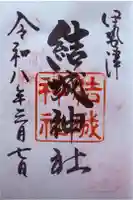 伊勢津
結城神社
結城神社
令和八年三月七日